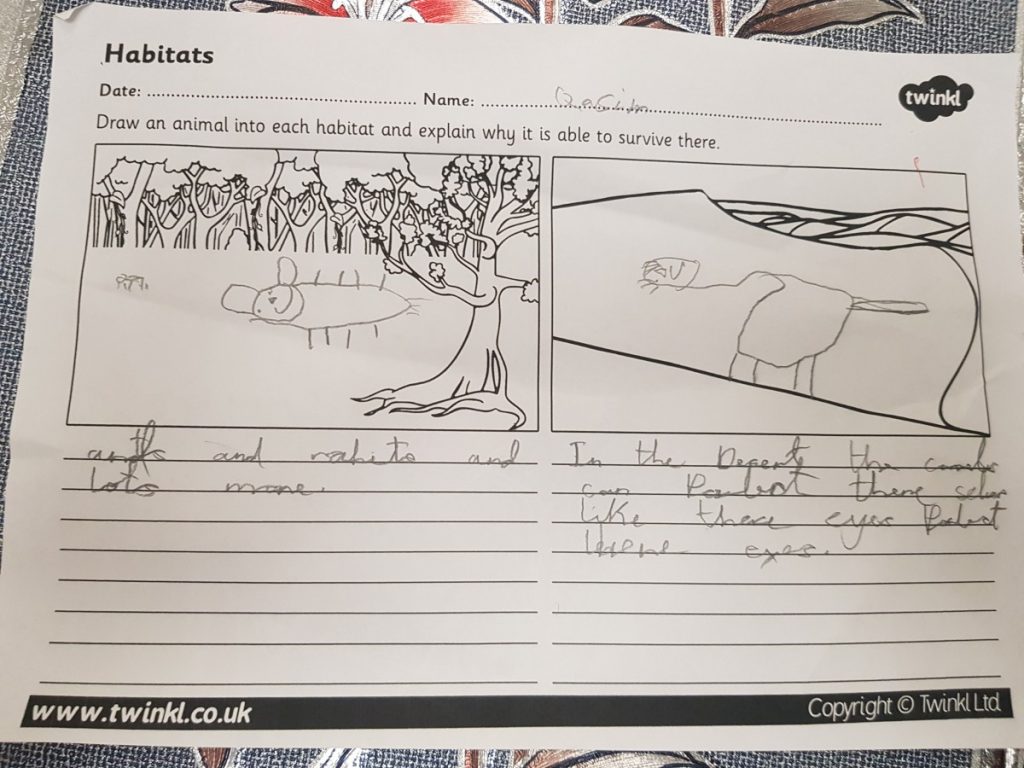 Habitats
twinkl
Date: Name:
Draw an animal into each habitat and explain why it is able to survive there.
and rabits and
lots more.
In the Desert the camels
can there
like there eyes
there eyes.
www.twinkl.co.uk
Copyright © Twinkl Ltd.